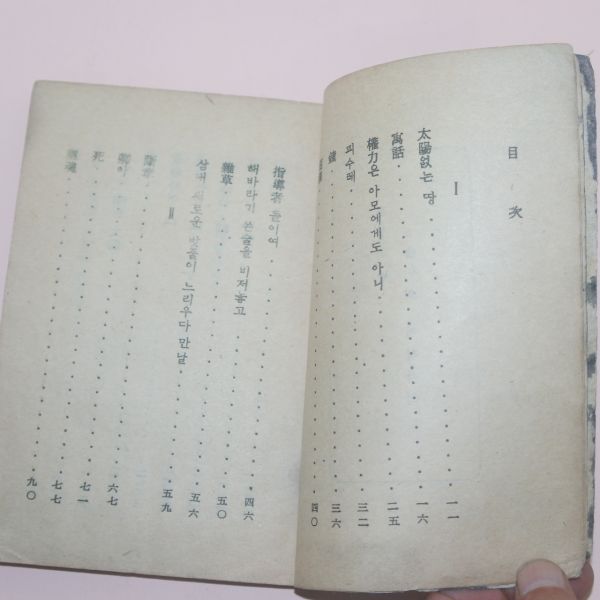 目次
I
太陽없는 땅 一一
寓話 一六
權力은 아모에게도 아니 二五
피수레 三二
三六
四〇
指導者들이여 四六
해바라기 쓴술을 비저놓고 五〇
雜草 五六
새로운 밧줄이 느리우다 만날 五九
II
六七
七一
死 七七
九〇